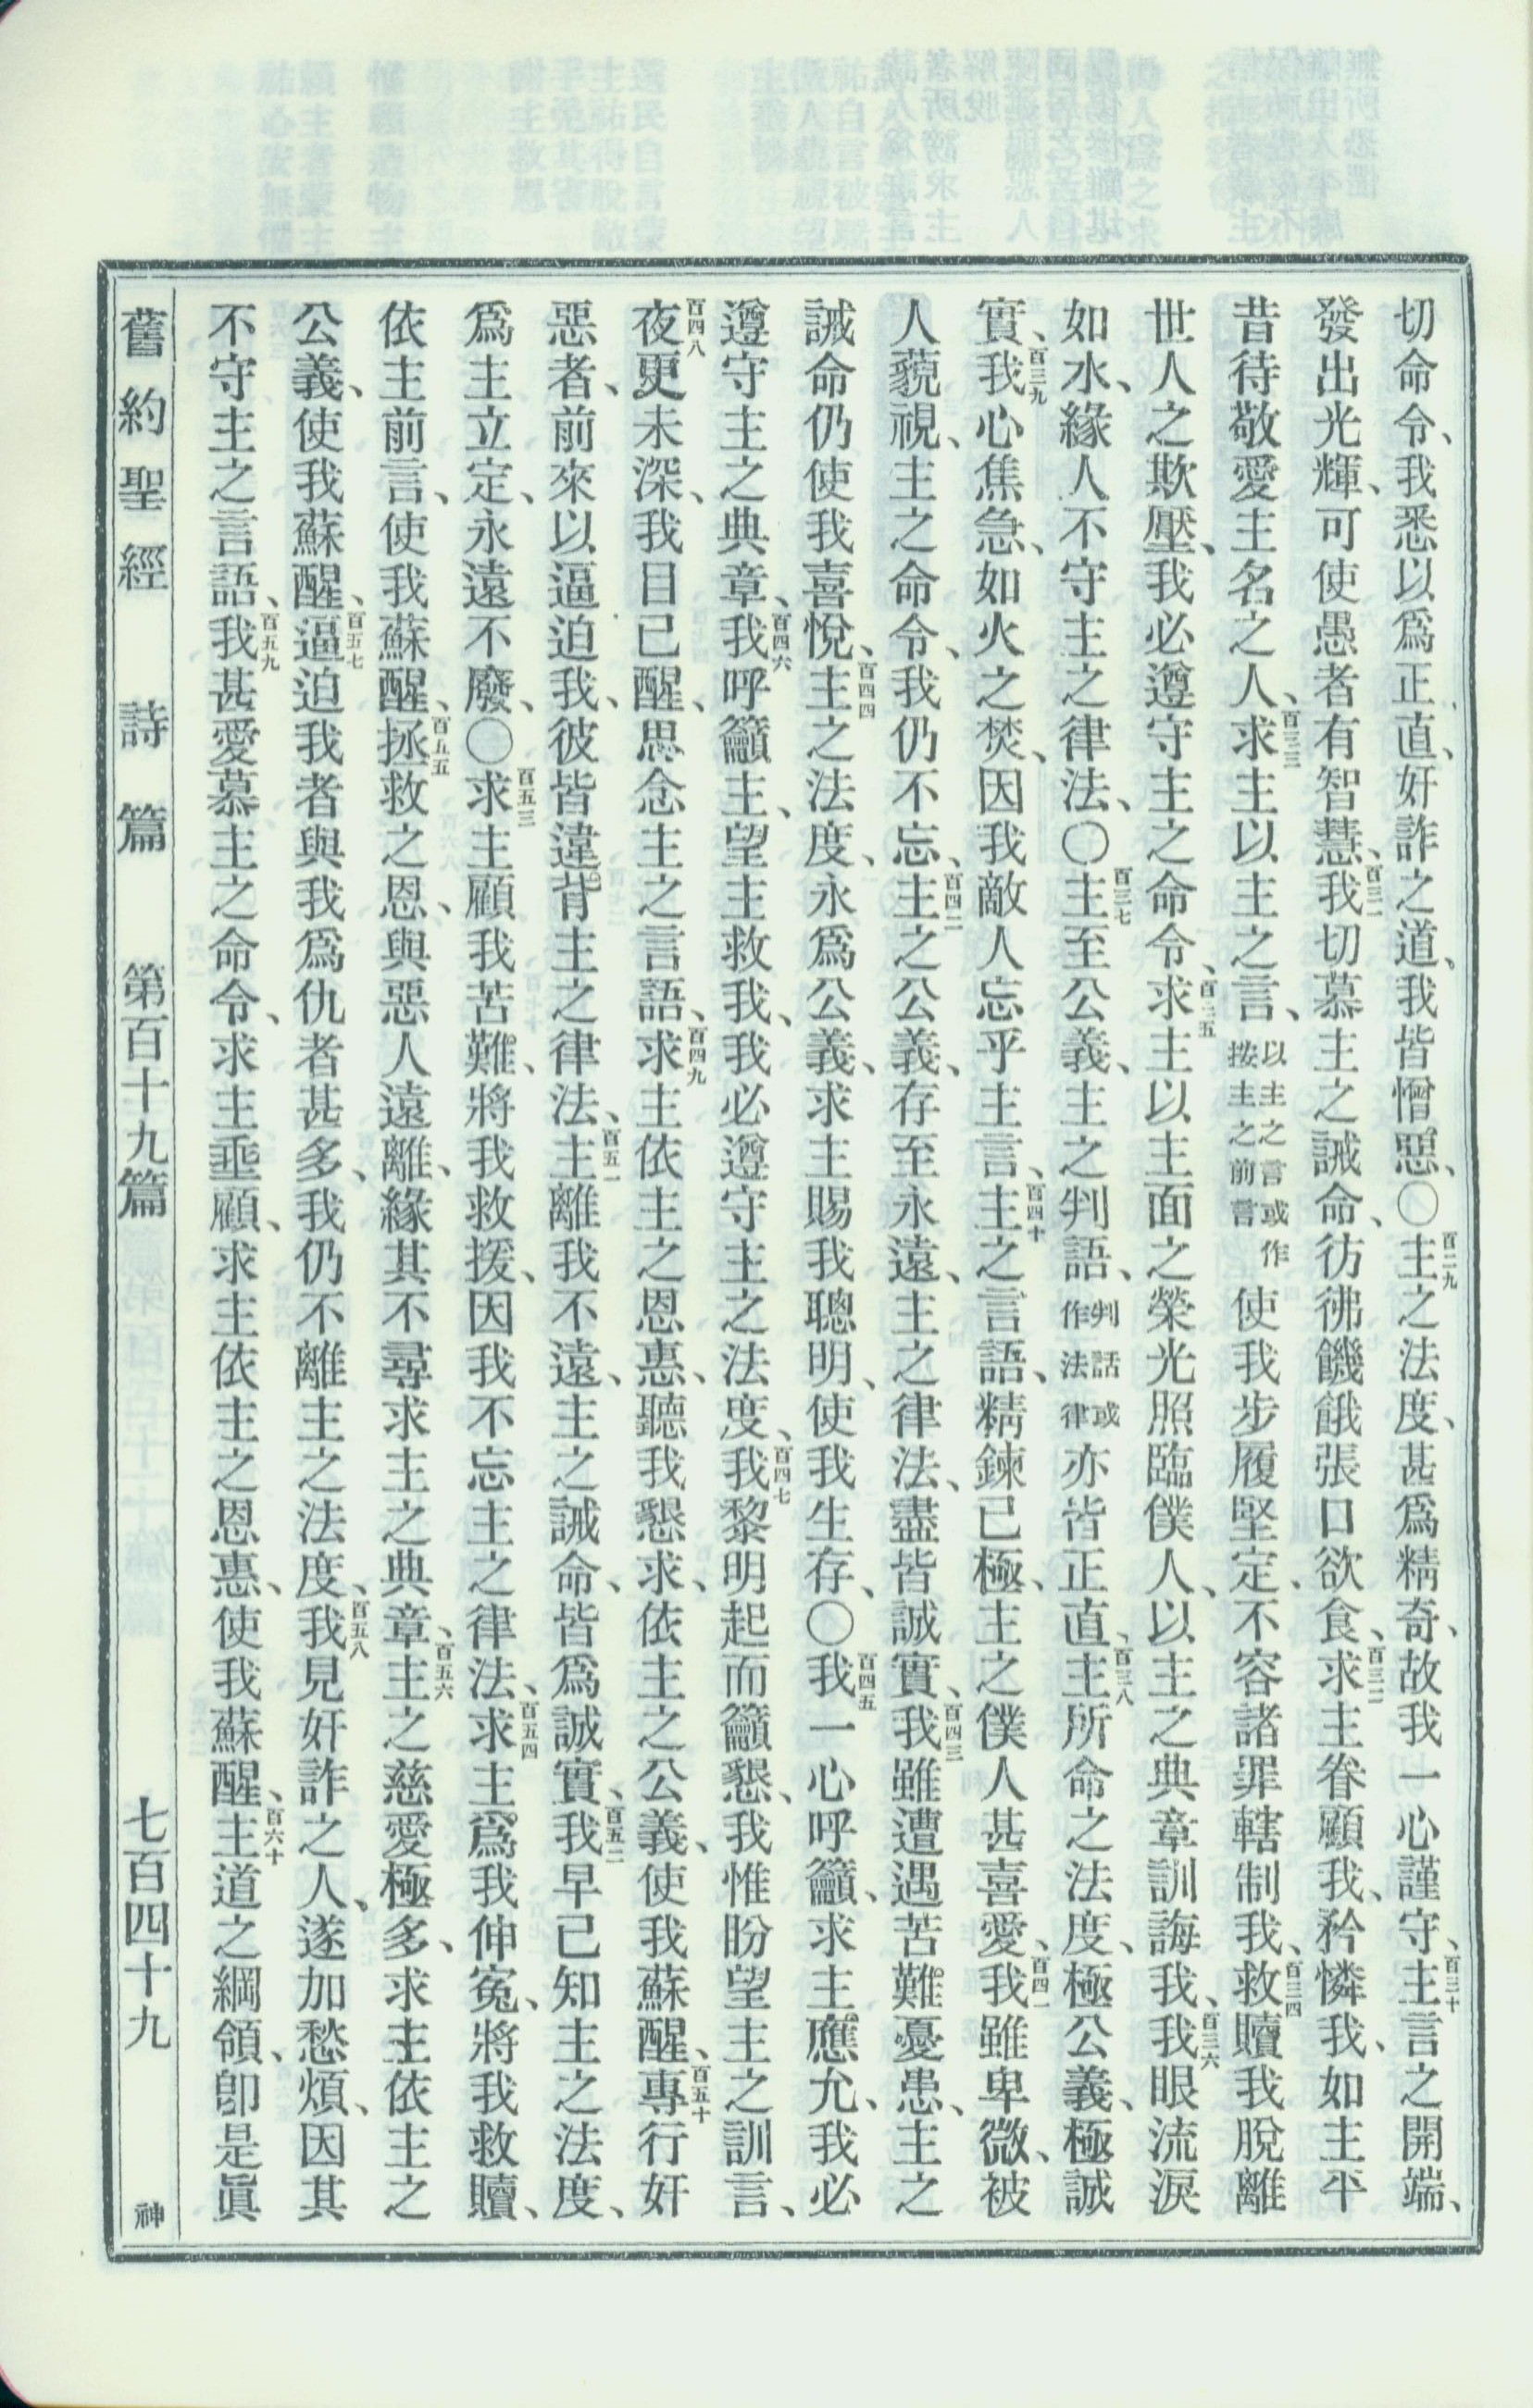 切命令、我悉以爲正直、奸詐之道、我皆憎惡、〇百二九主之法度、甚爲精奇、故我一心謹守、百三十主言之開端、
發出光輝、可使愚者有智慧、百三一我切慕主之誡命、彷彿饑餓張口欲食、百三二求主眷顧我、矜憐我、如主平
昔待敬愛主名之人、百三三求主以主之言、以主之言或作按主之前言使我步履堅定、不容諸罪轄制我、百三四救贖我脫離
世人之欺壓、我必遵守主之命令、百三五求主以主面之榮光照臨僕人、以主之典章訓誨我、百三六我眼流淚
如水、緣人不守主之律法、〇百三七主至公義、主之判語、判語或作法律亦皆正直、百三八主所命之法度、極公義、極誠
實、百三九我心焦急、如火之焚、因我敵人忘乎主言、百四十主之言語、精鍊已極、主之僕人甚喜愛、百四一我雖卑微、被
人藐視、主之命令、我仍不忘、百四二主之公義、存至永遠、主之律法、盡皆誠實、百四三我雖遭遇苦難憂患、主之
誡命仍使我喜悅、百四四主之法度、永爲公義、求主賜我聰明、使我生存、〇百四五我一心呼籲、求主應允、我必
遵守主之典章、百四六我呼籲主、望主救我、我必遵守主之法度、百四七我黎明起而籲懇、我惟盼望主之訓言、
百四八夜更未深、我目已醒、思念主之言語、百四九求主依主之恩惠、聽我懇求、依主之公義、使我蘇醒、百五十專行奸
惡者、前來以逼迫我、彼皆違背主之律法、百五一主離我不遠、主之誡命、皆爲誠實、百五二我早已知主之法度、
爲主立定、永遠不廢、〇百五三求主顧我苦難、將我救援、因我不忘主之律法、百五四求主爲我伸冤、將我救贖、
依主前言、使我蘇醒、百五五拯救之恩、與惡人遠離、緣其不尋求主之典章、百五六主之慈愛極多、求主依主之
公義、使我蘇醒、百五七逼迫我者與我爲仇者甚多、我仍不離主之法度、百五八我見奸詐之人、遂加愁煩、因其
不守主之言語、百五九我甚愛慕主之命令、求主垂顧、求主依主之恩惠、使我蘇醒、百六十主道之綱領、卽是眞
舊約聖經 詩篇 第百十九篇 七百四十九 神